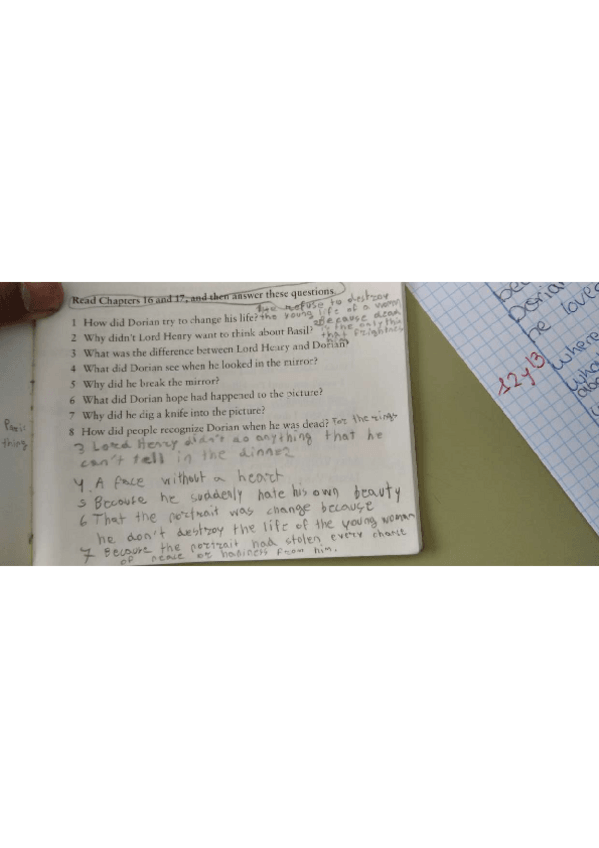 Read Chapters 16 and 17, and then answer these questions.
1 How did Dorian try to change his life? He refuse to destroy
the young life of a woman
2 Why didn't Lord Henry want to think about Basil? Because dead
is the only thing
that frightned
him
3 What was the difference between Lord Henry and Dorian?
4 What did Dorian see when he looked in the mirror?
5 Why did he break the mirror?
6 What did Dorian hope had happened to the picture?
7 Why did he dig a knife into the picture?
8 How did people recognize Dorian when he was dead? For the rings
3 Lord Henry didn't do anything that he
can't tell in the dinner
4. A face without a heart
5 Becouse he suddenly hate his own beauty
6 That the portrait was change because
he don't destroy the life of the young woman
7 Becaure the portrait had stolen every chance
of peace or hapiness from him.
thing
Doria
he love
12 y 13
where